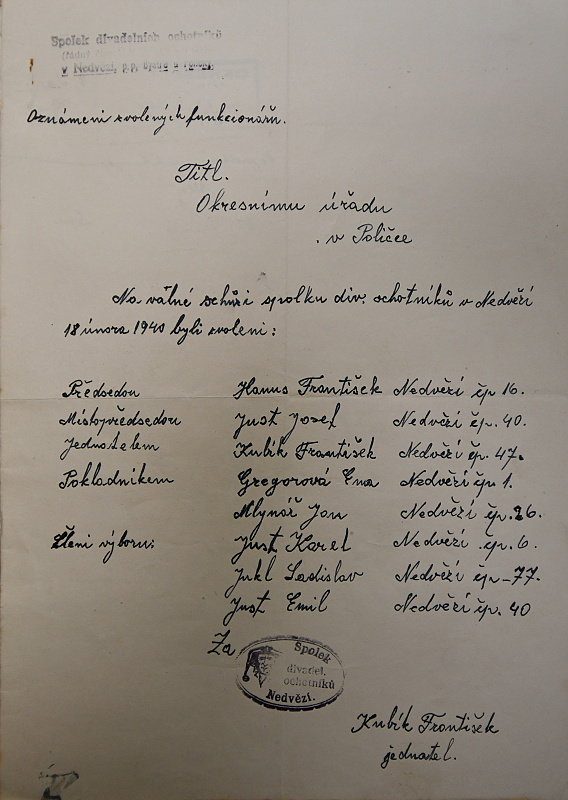 Spolek divadelních ochotníků
v Nedvězí, p.p.
Oznámení zvolených funkcionářů.
Titl.
Okresnímu úřadu
v Poličce
Na valné schůzi spolku div. ochotníků v Nedvězí
18 února 1940 byli zvoleni:
Předsedou Hanus František Nedvězí čp 16.
Místopředsedou Just Josef Nedvězí čp. 40.
Jednatelem Kubík František Nedvězí čp. 47.
Pokladníkem Gregorová Ena Nedvězí čp 1.
Mlynář Jan Nedvězí čp. 26.
Členi výboru: Just Karel Nedvězí čp. 6.
Jukl Ladislav Nedvězí čp. 77.
Just Emil Nedvězí čp. 40
Za
Spolek
divadel.
ochotníků
Nedvězí.
Kubík František
jednatel.